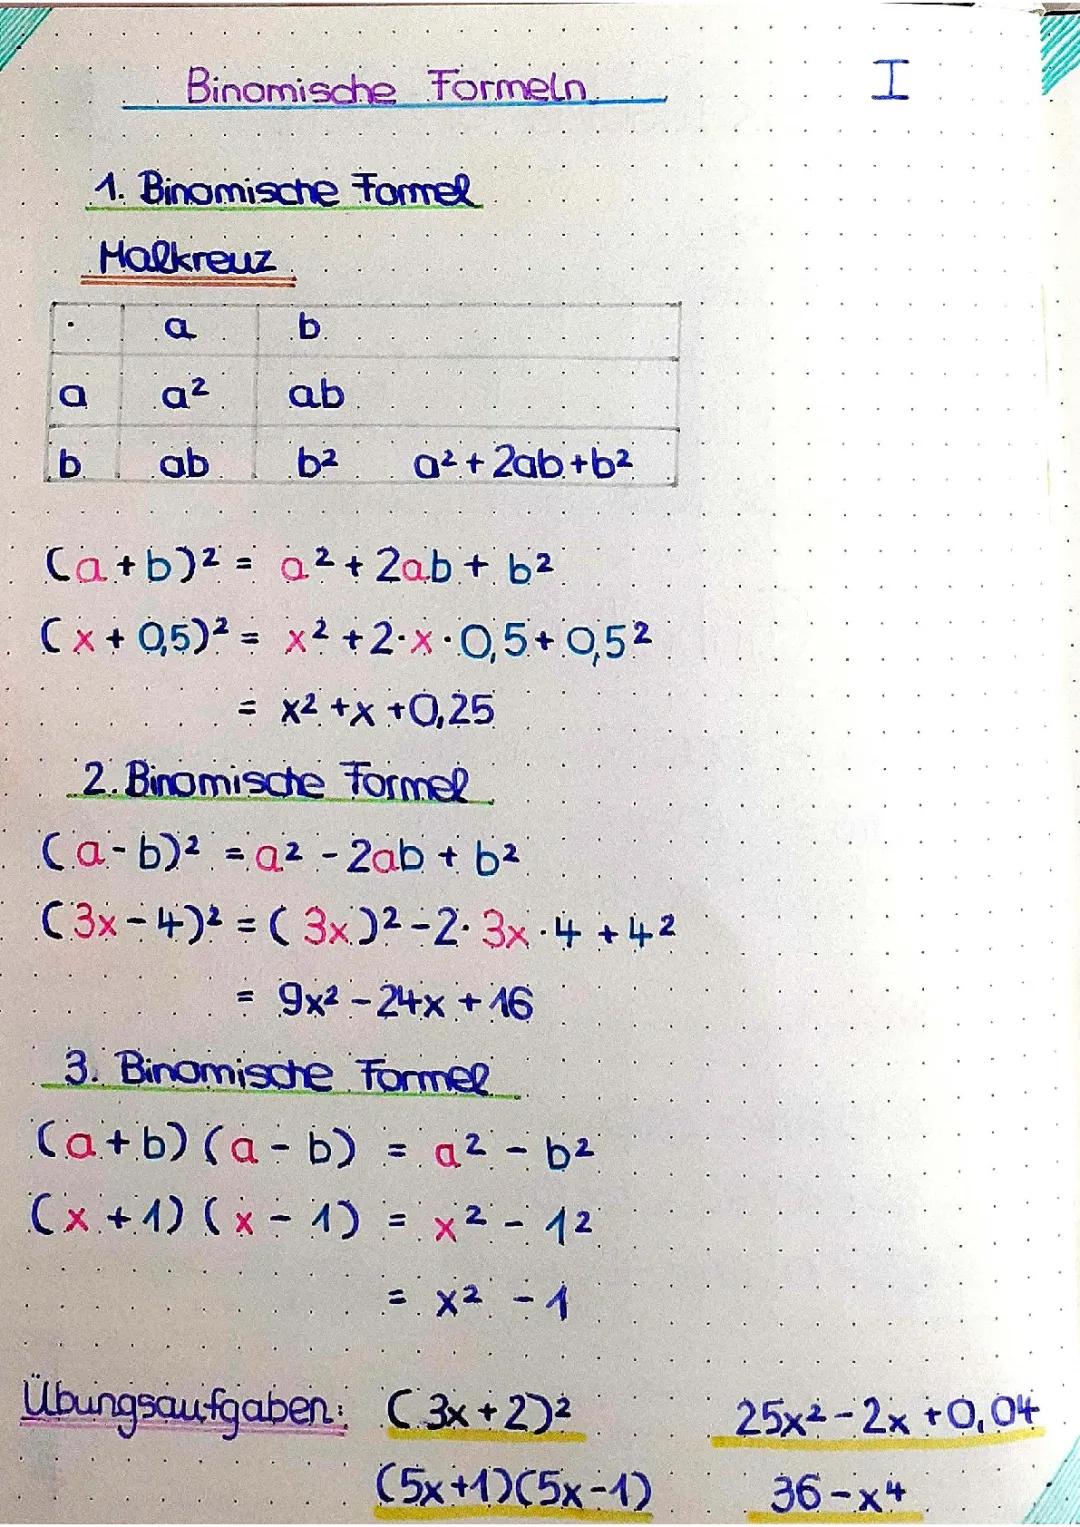 Binomische Formeln I
1. Binomische Formel
Malkreuz
· a b
a a² ab
b ab b² a² + 2ab + b²
(a + b)² = a² + 2ab + b²
(x + 0,5)² = x² + 2·x·0,5 + 0,5²
= x² + x + 0,25
2. Binomische Formel
(a - b)² = a² - 2ab + b²
(3x - 4)² = (3x)² - 2·3x·4 + 4²
= 9x² - 24x + 16
3. Binomische Formel
(a + b) (a - b) = a² - b²
(x + 1) (x - 1) = x² - 1²
= x² - 1
Übungsaufgaben: (3x + 2)² 25x² - 2x + 0,04
(5x+1)(5x-1) 36 - x⁴